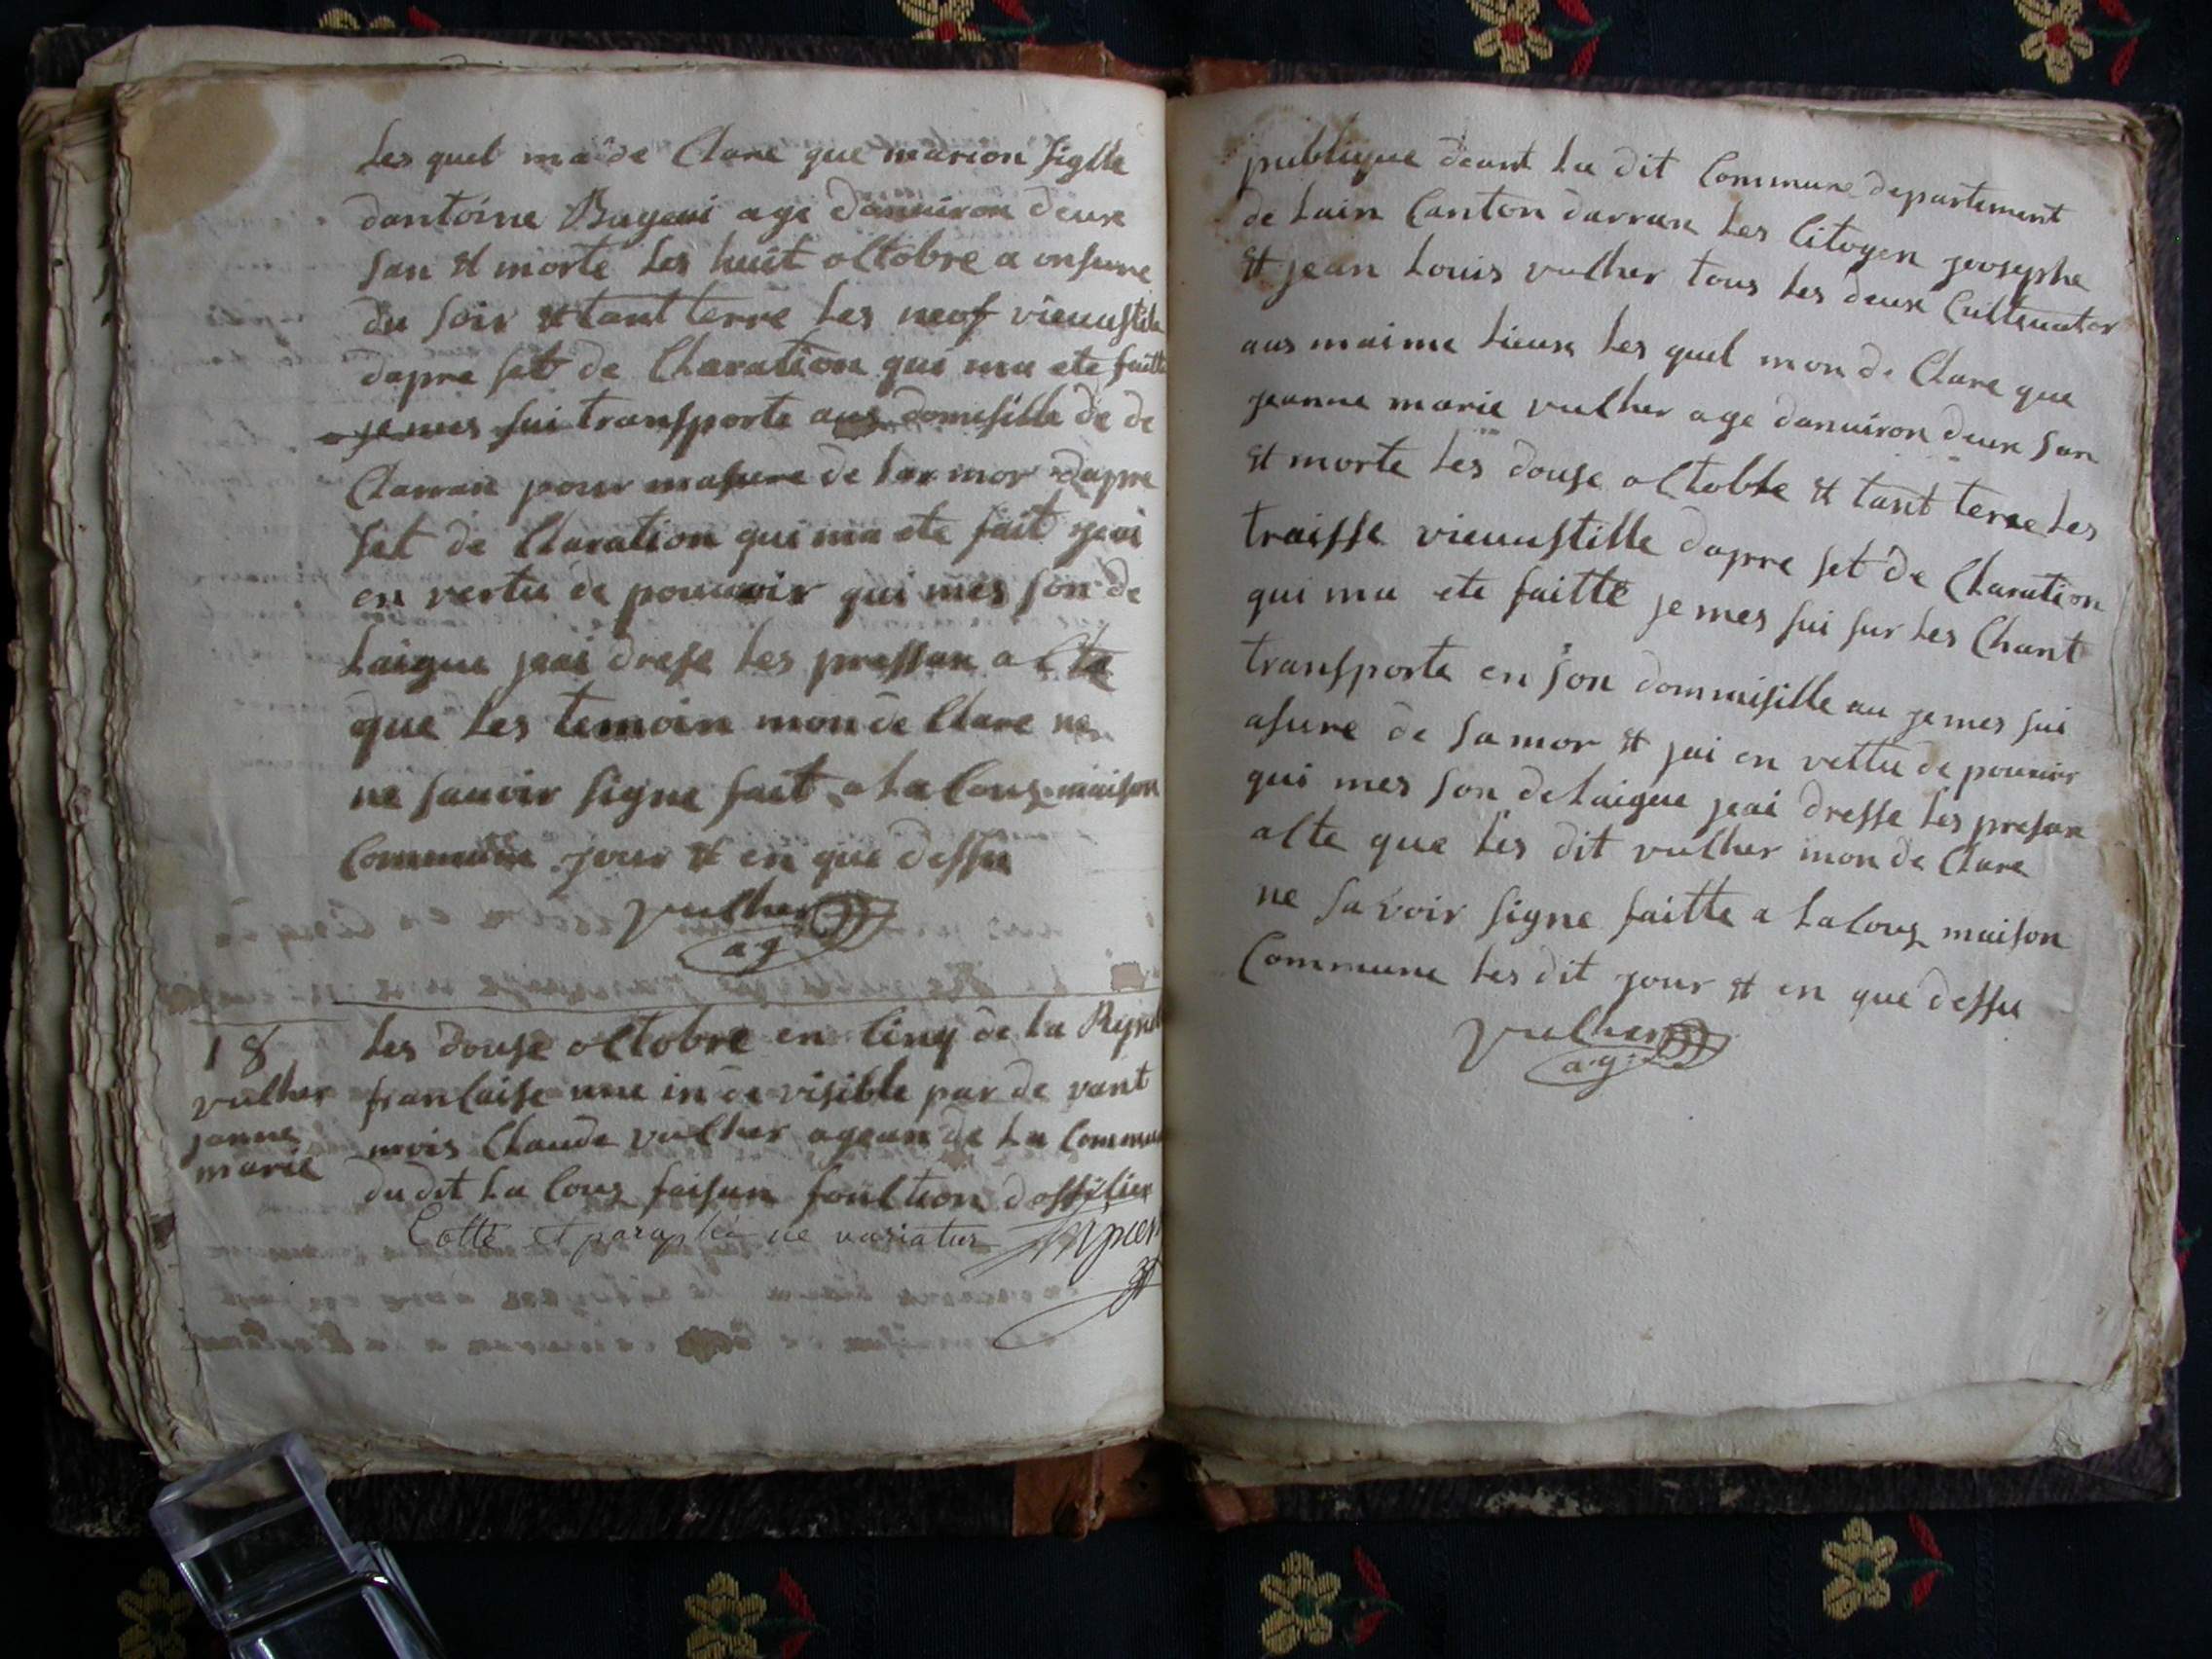 Les quel ma de Clare que marion figlle
dantoine Bugeni age danuiron deux
san et morte Les huit octobre a onsure
du soir et tant terre Les neof vieuustile
dapre set de Claration qui ma ete faitte
je mes sui transporte aus domisille de de
Claran pour masure de lar mor dapre
set de Claration qui ma ete fait jeai
en vertu de pouuoir qui mes son de
Laigue jeai drese Les pressan acte
que Les temoin mon de Clare ne
ne sauoir signe fait a La Coux maison
Commune jour et en que dessu
vulher
ag
18
vulher
janne
marie
Les douse octobre en Cinq de La Repu
francaise une in de visible par de vant
mois Claude vulher agean de La Commu
du dit La Coux faisan fonction dofficier
Cotté et paraphé ne variatur
publique deant La dit Commune departement
de Lain Canton darran Les Citoyen jeosephe
et jean Louis vulher tous Les deux Cultiuator
aus maime Lieux Les quel mon de Clare que
jeanne marie vulher age danuiron deux san
et morte Les douse octobre et tant terre Les
traisse vieuustille dapre set de Claration
qui ma ete faitte je mes sui sur Les Chant
transporte en son dommisille au je mes sui
asure de sa mor et jai en vettu de pouuoir
qui mes son de Laigue jeai dresse Les presan
alte que Les dit vulher mon de Clare
ne savoir signe faitte a La Coux maison
Commune Les dit jour et en que dessu
vulher
a.g.